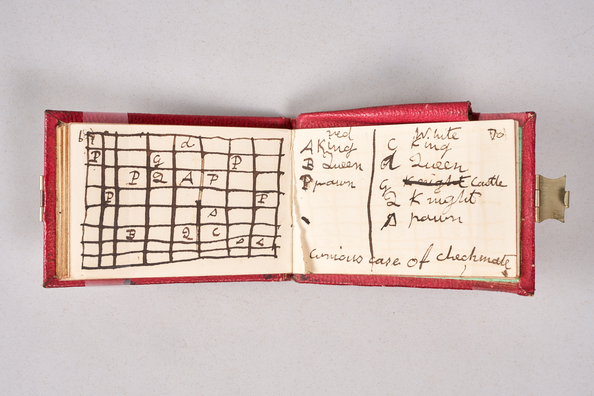 d
P G P
P Q A P
P P
Δ
B Q C Δ Δ
red
A King
B Queen
P pawn
White 70
C King
d Queen
G Knight Castle
Q Knight
Δ pawn
curious case of checkmate